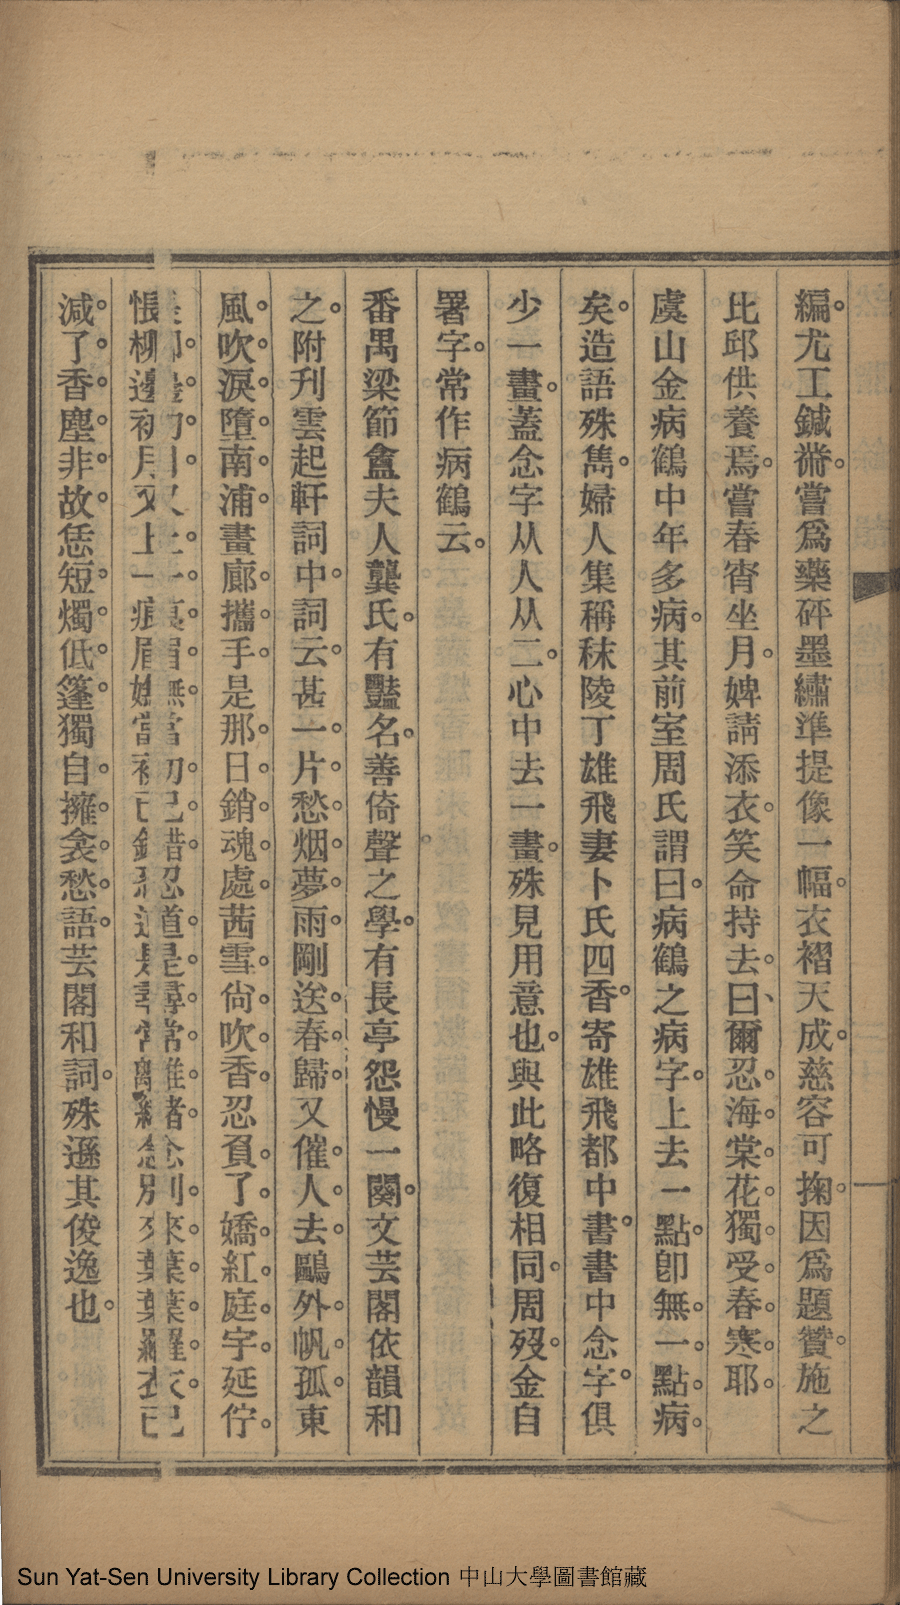 編。尤工鍼黹。嘗爲藥砰墨繡準提像一幅。衣褶天成。慈容可掬。因爲題贊。施之
比邱供養焉。嘗春宵坐月。婢請添衣。笑命持去。曰、爾忍海棠花獨受春寒耶。
虞山金病鶴中年多病。其前室周氏謂曰。病鶴之病字。上去一點。卽無一點病。
矣。造語殊雋。婦人集稱秣陵丁雄飛妻卜氏四香。寄雄飛都中書。書中念字。俱
少一畫。蓋念字从人从二。心中去一畫。殊見用意也。與此略復相同。周歿。金自
署字。常作病鶴云。
番禺梁節盦夫人龔氏。有豔名。善倚聲之學。有長亭怨慢一闋。文芸閣依韻和
之。附刋雲起軒詞中。詞云。甚一片。愁烟。夢雨。剛送。春歸。又催。人去。鷗外。帆孤。東
風。吹。淚。墮。南。浦。畫廊。攜。手。是那。日。銷。魂。處。茜雪。尙。吹。香。忍負。了。嬌。紅。庭。宇。延佇。
悵柳邊初月又上一痕眉嫵當初已錯忍道是尋常離緒念別來葉葉羅衣已
減。了。香。塵。非。故。恁短。燭。低。篷。獨自。擁。衾。愁。語。芸閣和詞。殊遜其俊逸也。
Sun Yat-Sen University Library Collection 中山大學圖書館藏